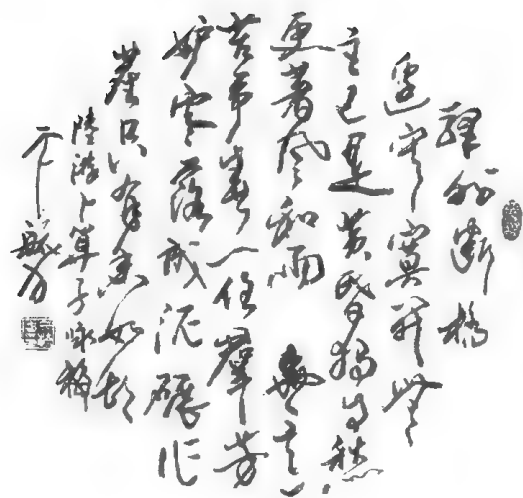 驛外斷橋
邊寂寞開無
主已是黄昏獨自愁
更著风和雨無意
苦爭春一任羣芳
妒零落成泥碾作
塵只有香如故
陸游卜算子咏梅